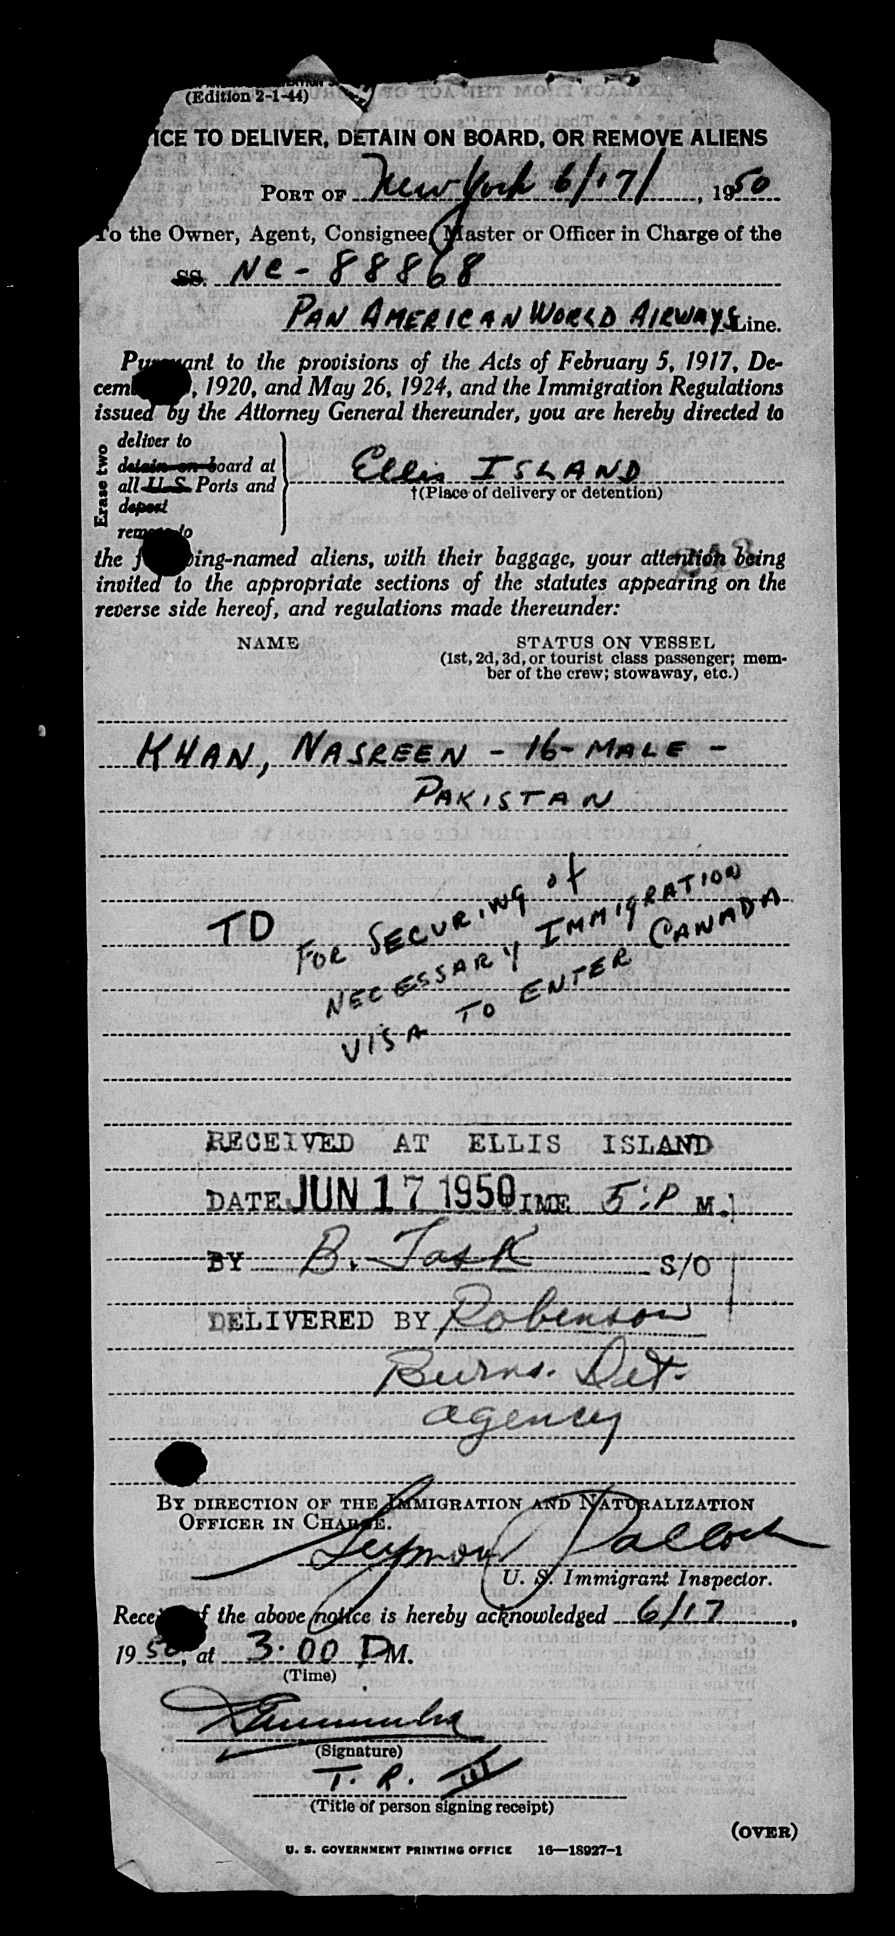 (Edition 2-1-44)
ICE TO DELIVER, DETAIN ON BOARD, OR REMOVE ALIENS
PORT OF New York 6/17/, 1950
To the Owner, Agent, Consignee, Master or Officer in Charge of the
SS. NC-88868
PAN AMERICAN WORLD AIRWAYS Line.
Pursuant to the provisions of the Acts of February 5, 1917, De-
cem , 1920, and May 26, 1924, and the Immigration Regulations
issued by the Attorney General thereunder, you are hereby directed to
Erase two
deliver to
detain on board at
all U.S. Ports and
deport
remove to
Ellis ISLAND
†(Place of delivery or detention)
the f ing-named aliens, with their baggage, your attention being
invited to the appropriate sections of the statutes appearing on the
reverse side hereof, and regulations made thereunder:
NAME STATUS ON VESSEL
(1st, 2d, 3d, or tourist class passenger; mem-
ber of the crew; stowaway, etc.)
KHAN, NASREEN - 16 - MALE -
PAKISTAN
TD FOR SECURING of
NECESSARY IMMIGRATION
VISA TO ENTER CANADA
RECEIVED AT ELLIS ISLAND
DATE JUN 17 1950 IME 5:P M.
BY B. Task S/O
DELIVERED BY Robinson
Burns. Det.
agency
BY DIRECTION OF THE IMMIGRATION AND NATURALIZATION
OFFICER IN CHARGE.
Seymour Pallock
U. S. Immigrant Inspector.
Rece f the above notice is hereby acknowledged 6/17,
1950, at 3:00 PM.
(Time)
(Signature)
T. R. III
(Title of person signing receipt)
(OVER)
U. S. GOVERNMENT PRINTING OFFICE 16—18927-1